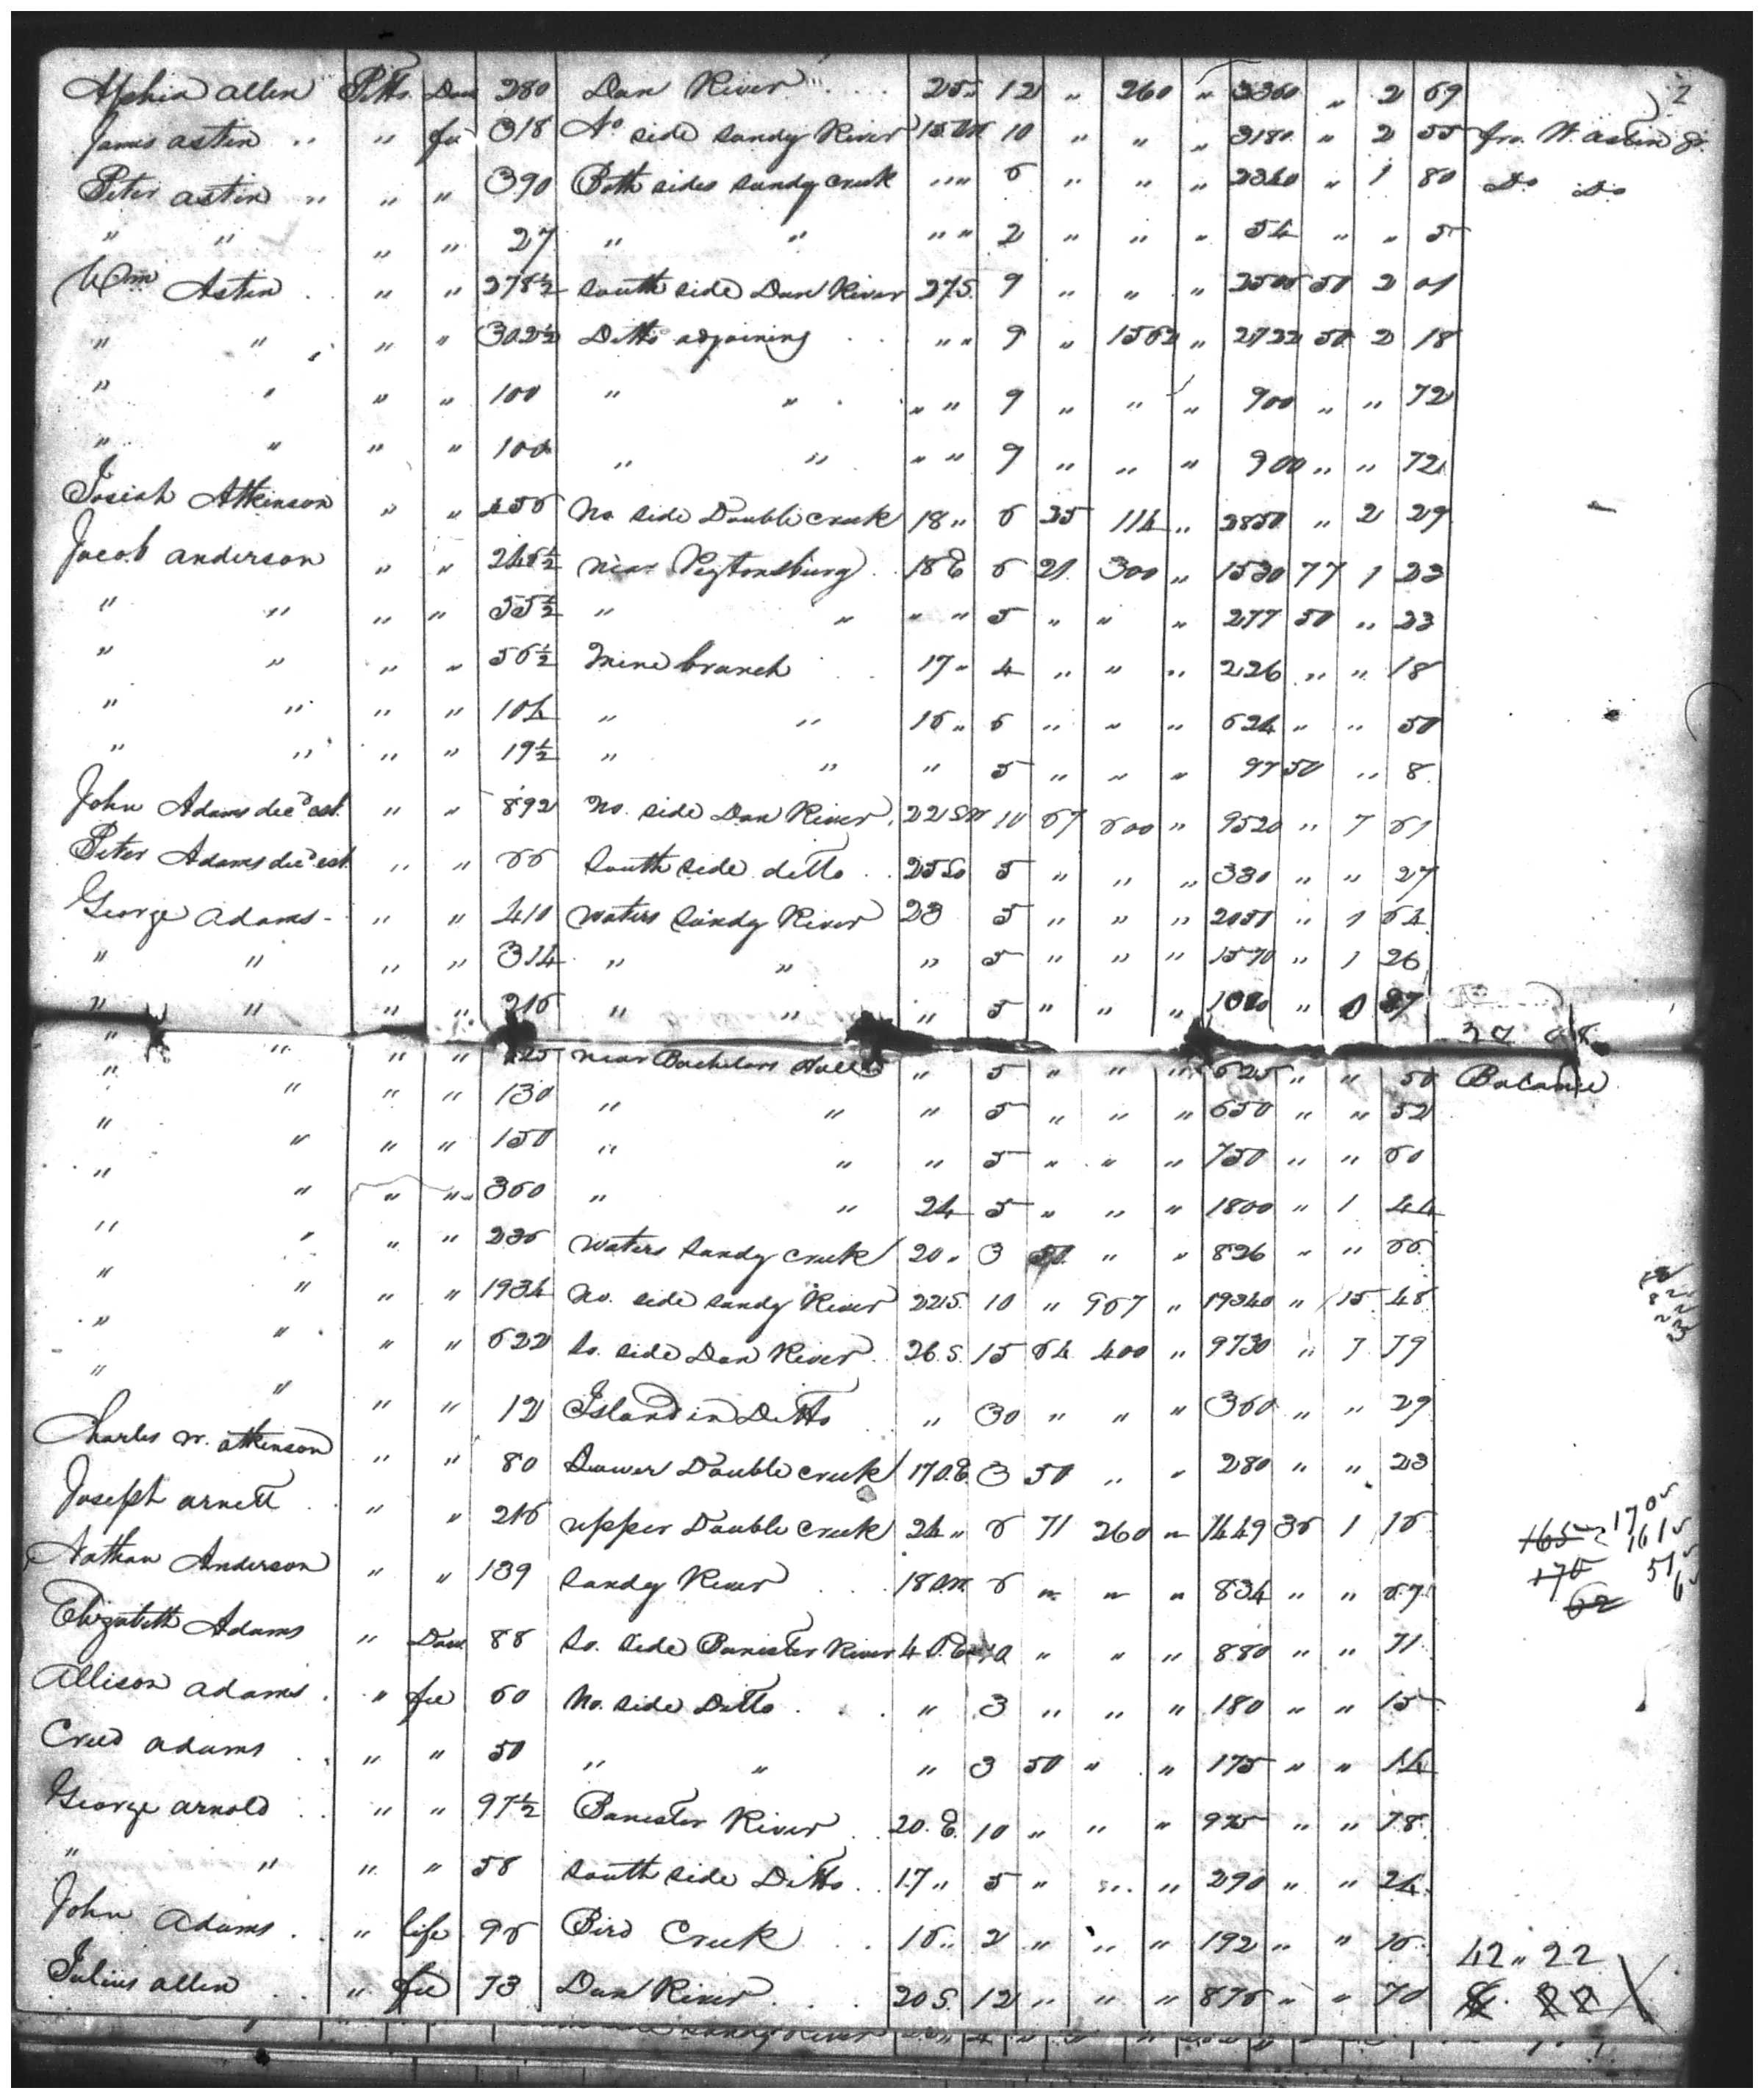 2
Alphia Allen Pitts. Dow 280 Dan River 25 " 12 " 260 " 3360 " 2 69
James Astin " fee 318 No side Sandy River 15 SW 10 " " " 3180 " 2 55 Jno. W. Astin Jr.
Peter Astin " " 390 Both sides Sandy Creek " " 6 " " " 2340 " 1 80 Do Do
" " " " 27 " " " " 2 " " " 54 " " 5
Wm Astin " " 278½ South side Dan River 27 S. 9 " " " 2506 50 2 01
" " " " 302½ Ditto adjoining " " 9 " 1562 " 2722 50 2 18
" " " " 100 " " " " 9 " " " 900 " " 72
" " " " 100 " " " " 9 " " " 900 " " 72
Josiah Atkinson " " 456 No side Double Creek 18 " 6 25 114 " 2850 " 2 29
Jacob Anderson " " 246½ near Peytonsburg 18 E 6 21 300 " 1530 77 1 23
" " " " 55½ " " " " 5 " " " 277 50 " 23
" " " " 56½ Mine branch 17 " 4 " " " 226 " " 18
" " " " 104 " " 16 " 6 " " " 624 " " 50
" " " " 19½ " " " 5 " " " 97 50 " 8
John Adams decd est. " " 892 No. side Dan River 22 SW 10 67 600 " 9520 " 7 61
Peter Adams decd est. " " 66 South side ditto 25 So 5 " " " 330 " " 27
George Adams " " 410 Waters Sandy River 23 5 " " " 2050 " 1 64
" " " " 314 " " " 5 " " " 1570 " 1 26
" " " " 216 " " " 5 " " " 1080 " 87
" " " " 125 near Bachelors Hall " 5 " " " 625 " " 50 Balance
" " " " 130 " " " 5 " " " 650 " " 52
" " " " 150 " " " 5 " " " 750 " " 60
" " " " 360 " " 24 5 " " " 1800 " 1 44
" " " " 236 Waters Sandy Creek 20 " 3 50 " " 826 " " 66
" " " " 1934 No. side Sandy River 22 S. 10 " 967 " 19340 " 15 48
" " " " 622 So. side Dan River 26. S. 15 64 400 " 9730 " 7 79
" " " " 12 Island in Ditto " 30 " " " 360 " " 29
Charles W. Atkinson " " 80 Lower Double Creek 17 S.E 3 50 " " 280 " " 23
Joseph Arnett " " 216 upper Double Creek 24 " 6 71 260 " 1449 36 1 16
Nathan Anderson " " 139 Sandy River 18 SW. 6 " " " 834 " " 67
Elizabeth Adams " Dow 88 So. side Banister River 4 S.E 10 " " " 880 " " 71
Allison Adams " fee 60 No. side Ditto " 3 " " " 180 " " 15
Creed Adams " " 50 " " " 3 50 " " 175 " " 14
George Arnold " " 97½ Banister River 20. E. 10 " " " 975 " " 78
" " " " 58 South side Ditto 17 " 5 " " " 290 " " 24
John Adams " life 96 Bird Creek 16 " 2 " " " 192 " " 16 42 " 22
Julius Allen " fee 73 Dan River 20 S. 12 " " " 876 " " 70